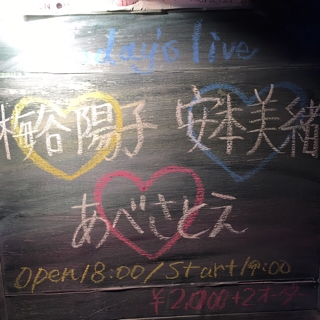 day's live
梅谷陽子 安本美緒
あべさとえ
open18:00/start19:00
¥2,000+2オーダー